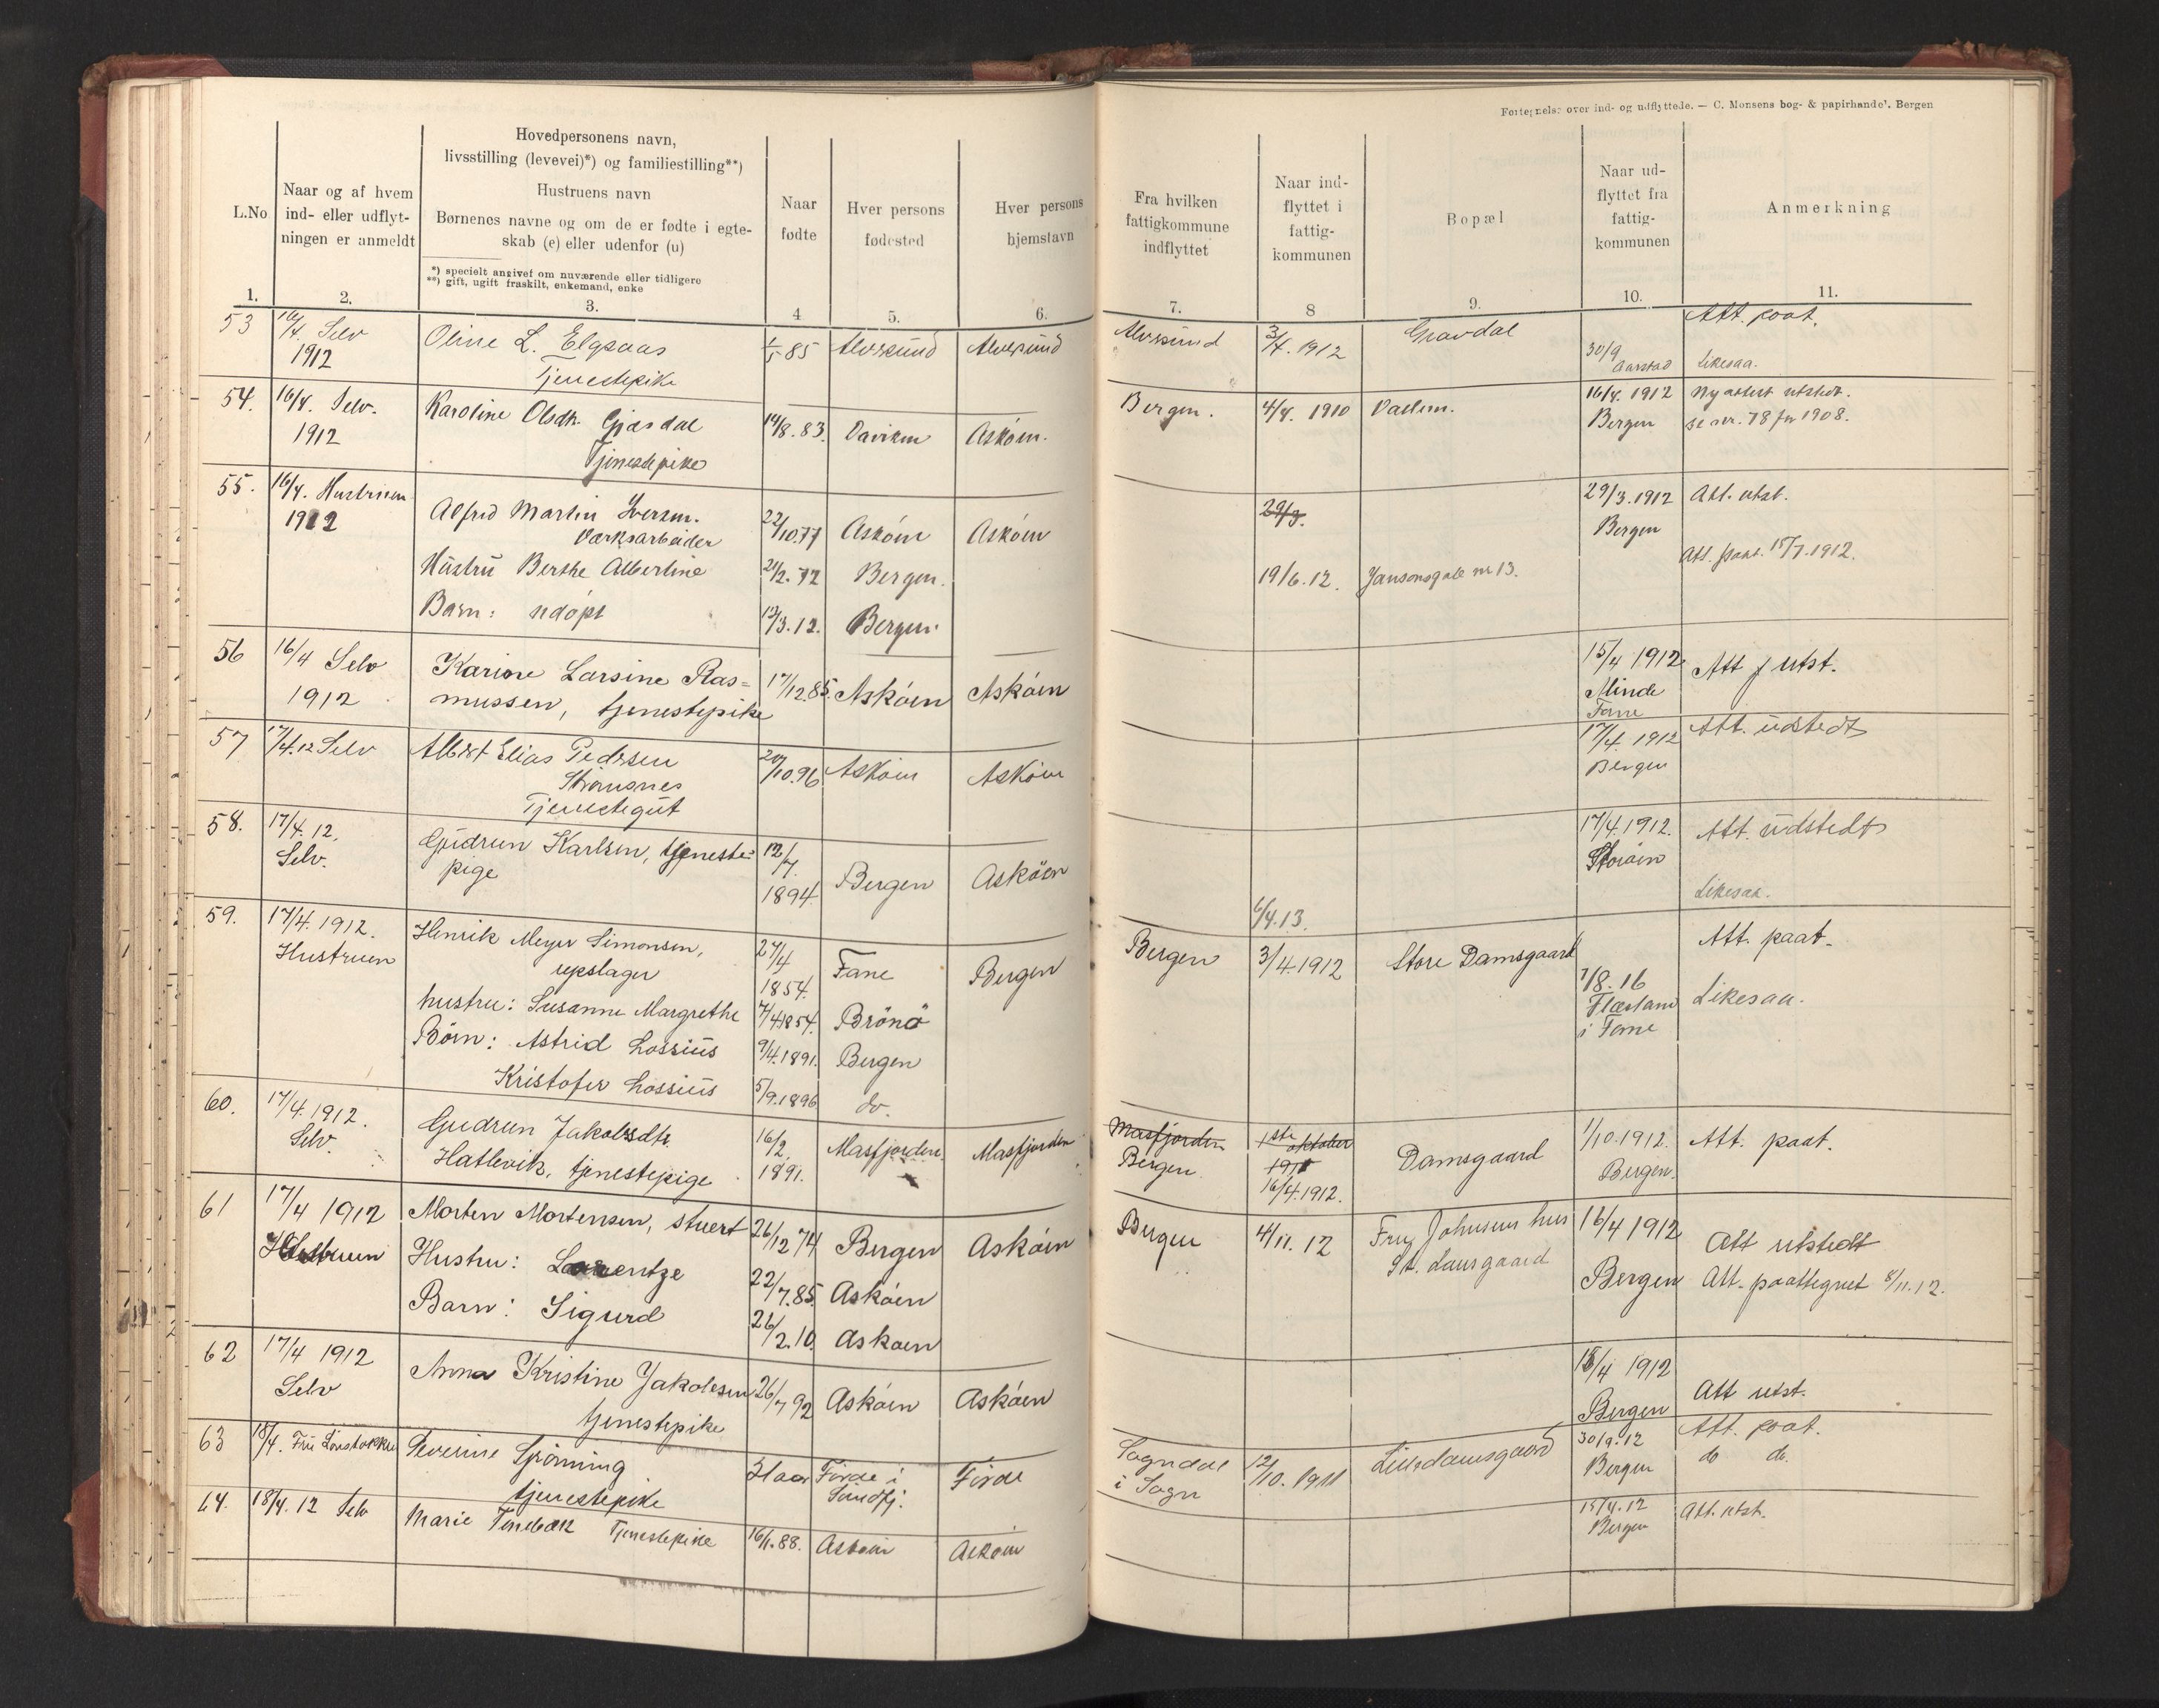 Fortegnelse over ind- og udflyttede. — C. Monsens bog- & papirhandel. Bergen
L.No
1.
Naar og af hvem
ind- eller udflyt-
ningen er anmeldt
2.
Hovedpersonens navn,
livsstilling (levevei)*) og familiestilling**)
Hustruens navn
Børnenes navne og om de er fødte i egte-
skab (e) eller udenfor (u)
*) specielt angivet om nuværende eller tidligere
**) gift, ugift fraskilt, enkemand, enke
3.
Naar
fødte
4
Hver persons
fødested
5.
Hver persons
hjemstavn
6.
Fra hvilken
fattigkommune
indflyttet
7.
Naar ind-
flyttet i
fattig-
kommunen
8
Bopæl
9.
Naar ud-
flyttet fra
fattig-
kommunen
10.
Anmerkning
11.
53
Selv
1912
Oline L. Elgsaas
Tjenestepike
85
Alversund
Alversund
Alversund
3/4. 1912
Gravdal
30/9
Aarstad
Att. paat.
Likesaa.
54.
16/4. Selv.
1912
Karoline Olsdtr. Gjasdal
Tjenestepike
14/8. 83.
Daviken
Askøen.
Bergen.
4/4. 1910
16/4. 1912
Bergen
Ny attest utstedt.
se nr. 78 for 1908.
55.
16/4. Hustruen
1912
Alfred Martin Iversen.
Værksarbeider
22/10.77
Askøen
Askøen
29/3.
29/3.1912
Bergen
Att. utst.
Hustru Berthe Albertine
21/2. 72
Bergen.
19/6.12.
Jansonsgate nr 13.
Att. paat. 15/7.1912.
Barn: udøpt
13/3.12.
Bergen.
56
16/4 Selv
1912
Karine Larsine Ras=
mussen, tjenestepike
17/12.85.
Askøen
Askøen
15/4 1912
Minde
Fane
Att utst.
57
17/4.12 Selv
Albert Elias Pedersen
Strømsnes
Tjenestegut
20/10.96
Askøen
Askøen
17/4. 1912
Bergen
Att. udstedt
58.
17/4. 12.
Selv.
Gudrun Karlsen, tjeneste-
pige
12/7.
1894
Bergen
Askøen
6/4.13.
17/4.1912.
Storøen
Att. udstedt
Likesaa.
59.
17/4.1912.
Hustruen
Henrik Meyer Simonsen,
repslager
27/4
1854.
Fane
Bergen
Bergen
3/4.1912
Store Damsgaard
1/8.16
Flesland
i Fane
Att. paat.
Likesaa.
hustru: Susanne Margrethe
7/4 1854.
Brönö
Börn: Astrid Lossius
9/4.1891.
Bergen
Kristofer Lossius
5/9.1896
do.
60.
17/4.1912.
Selv.
Gudrun Jakobsdtr.
Hatlevik, tjenestepige
16/2.
1891.
Masfjorden.
Masfjorden
Masfjorden
Bergen.
1ste oktober
1911
16/4.1912.
Damsgaard
1/10.1912.
Bergen.
Att. paat.
61
17/4 1912
Hustruen
Morten Mortensen, stuert
26/12 74
Bergen
Askøen
Bergen
4/11. 12
Fru Johnsens hus
St. Damsgaard
16/4 1912
Bergen
Att utstedt
Att. paategnet 8/11.12.
Hustru: Laurentze
22/7.85.
Askøen
Barn: Sigurd
26/2.10.
Askøen
62
17/4 1912
Selv
Anna Kristine Jakobsen
tjenestepike
26/7 92
Askøen
Askøen
18/4 1912
Bergen
Att utst.
63
18/4. Fru Lønstokken
Severine Spørning
tjenestepike
31 aar
Førde i
Søndfj.
Førde
Sogndal
i Sogn
12/10. 1911
Lilledamsgaard
30/9.12
Bergen
Att. paat.
do do.
64.
18/4. 12 Selv
Marie Tenebæk Tjenestepike
16/1.88.
Askøen
Askøen
15/4.12
Bergen
Att. utst.